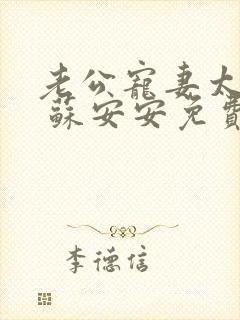 老公寵妻太
蘇安安免費
李德信